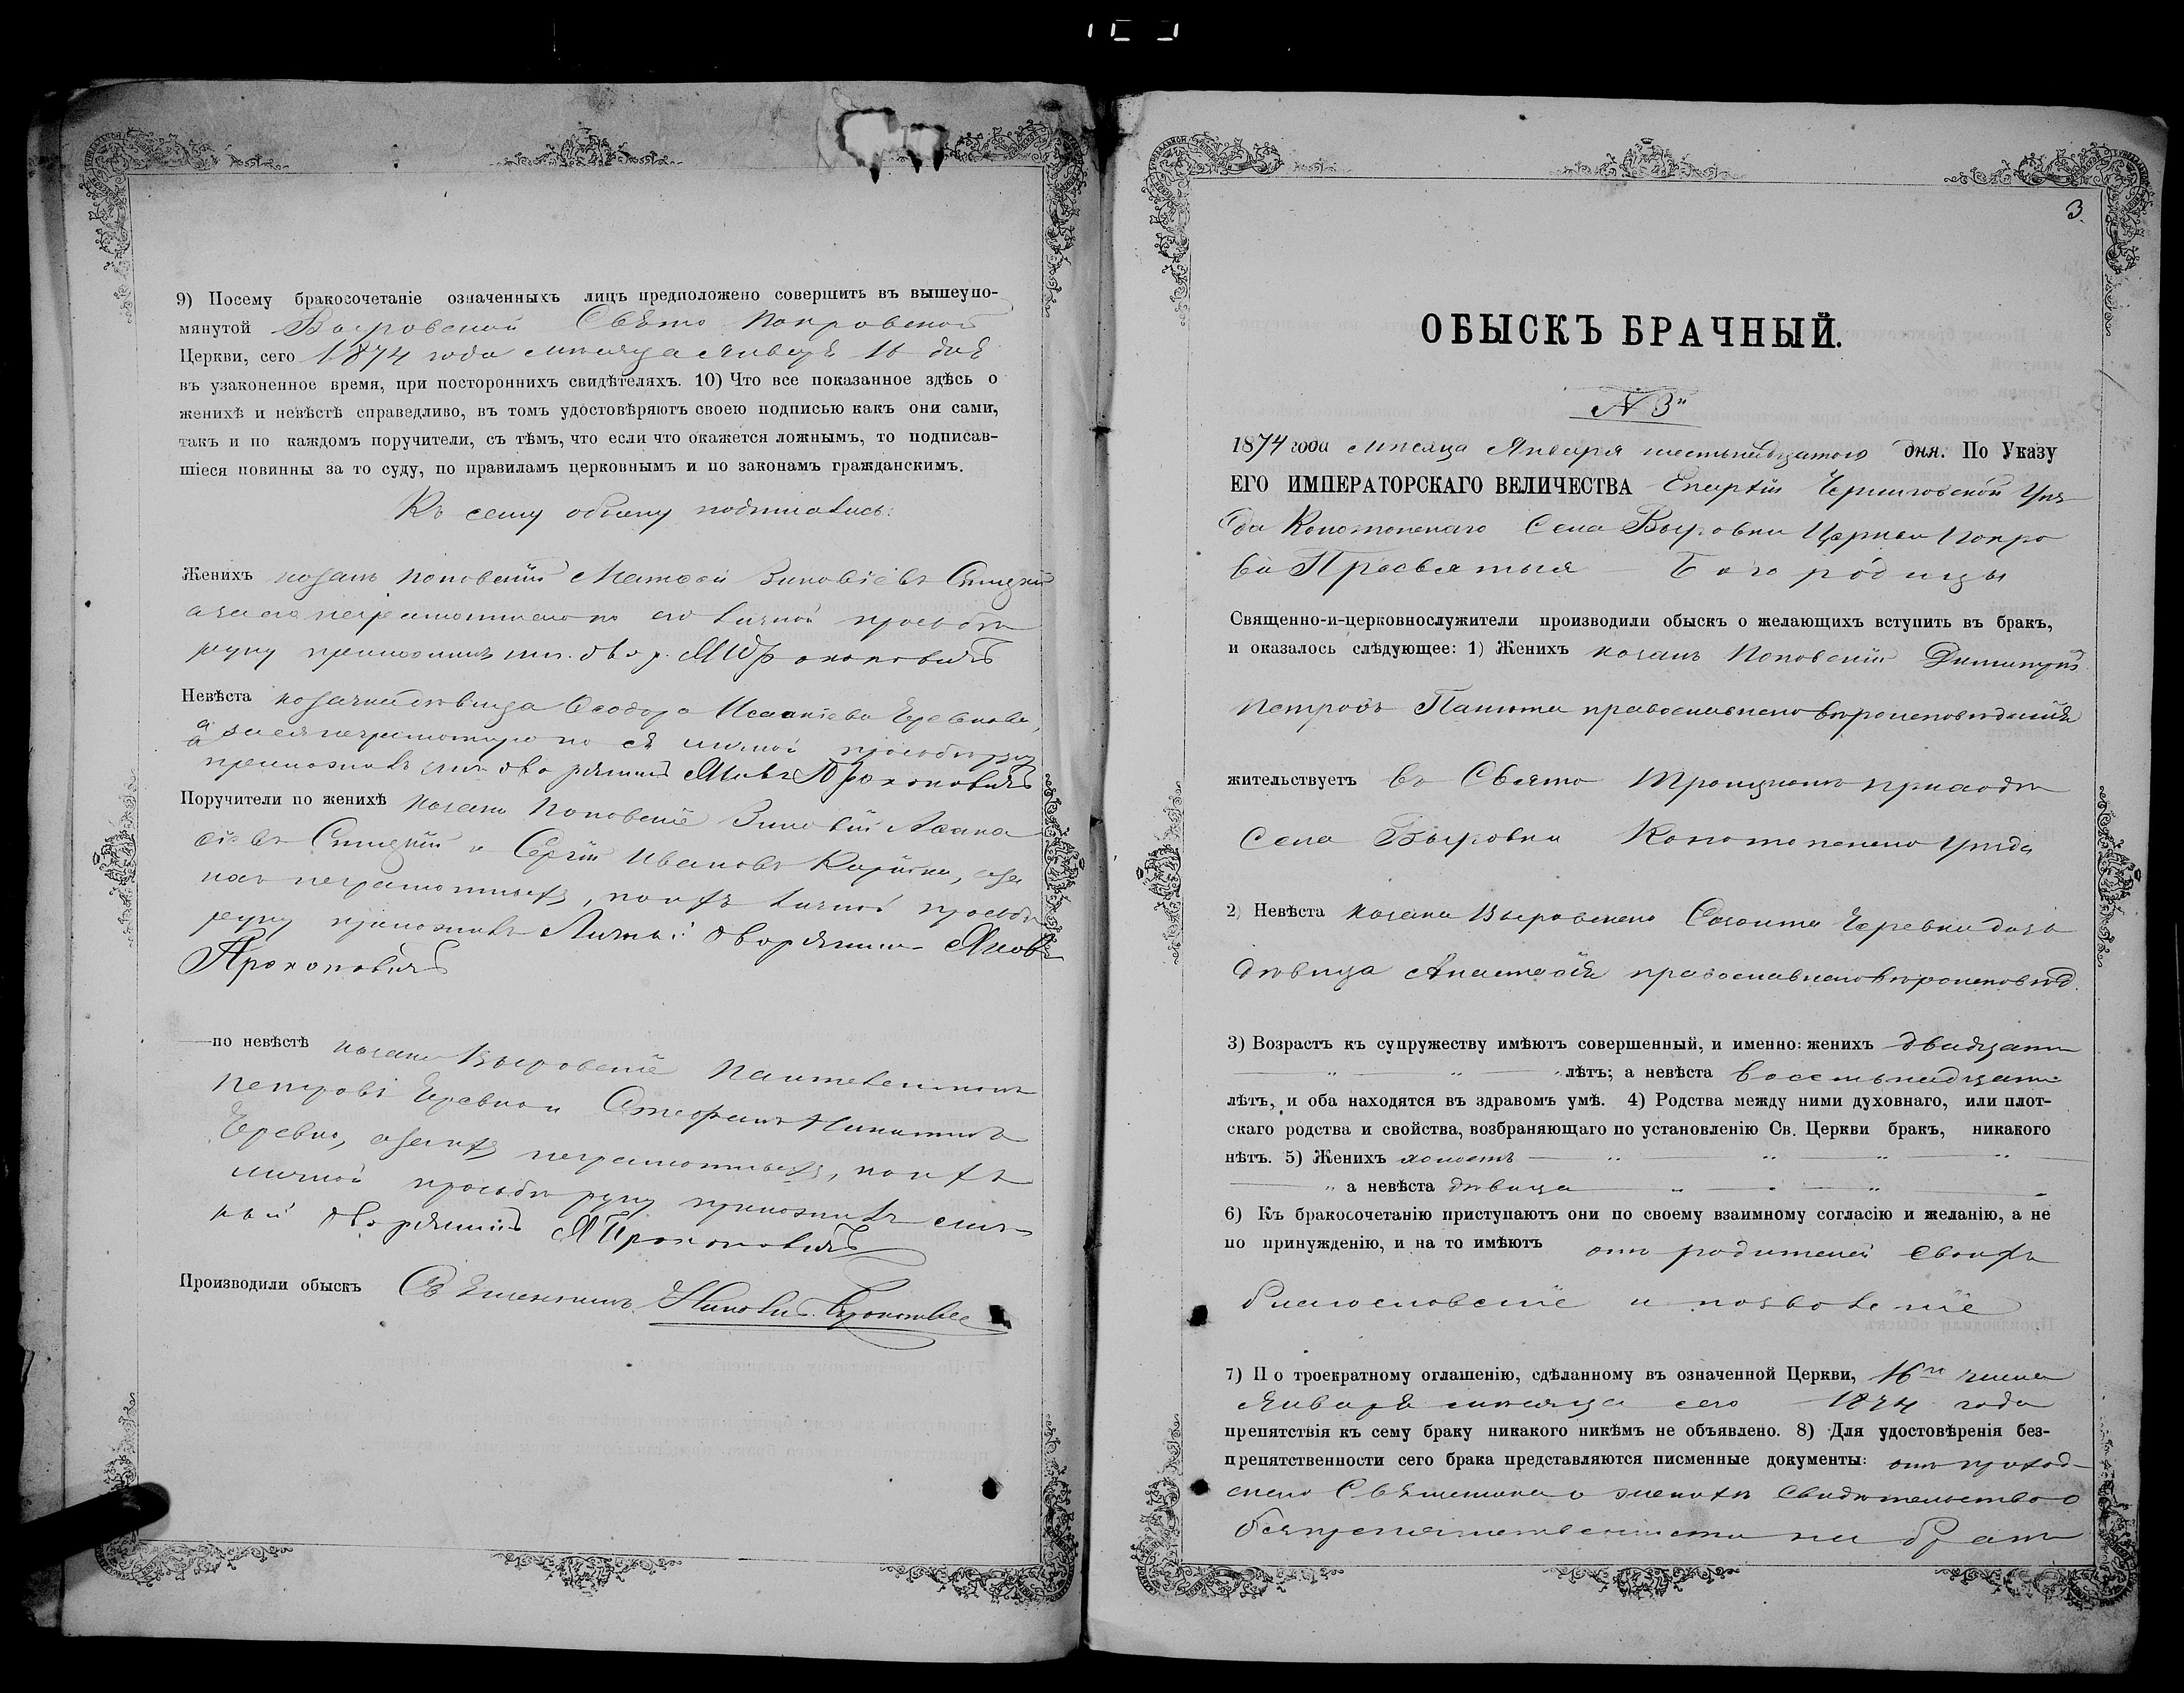 9) Посему бракосочетаніе означенныхъ лицъ предположено совершить въ вышеупо-
мянутой Выровской Свято Покровской
Церкви, сего 1874 года месяца Января 16 дня
въ узаконенное время, при постороннихъ свидѣтеляхъ. 10) Что все показанное здѣсь о
женихѣ и невѣстѣ справедливо, въ томъ удостовѣряютъ своею подписью какъ они сами,
такъ и по каждомъ поручители, съ тѣмъ, что если что окажется ложнымъ, то подписав-
шіеся повинны за то суду, по правиламъ церковнымъ и по законамъ гражданскимъ.
Къ сему обыску подписались:
Женихъ козакъ Поповскій Матѳей Зиновіевъ Спицкій
а за его неграмотного по его личной просьбѣ
руку приложилъ лич. двор. Я Прокоповичъ
Невѣста козачка дѣвица Ѳеодора Исаакіева Еревкова,
а за ея неграмотную по ея личной просьбѣ руку
приложилъ лич дворянинъ Яковъ Прокоповичъ
Поручители по женихѣ козаки Поповскіе Зиновій Аѳана
сіевъ Спицкій и Сергій Ивановъ
неграмотныхъ, по ихъ личной просьбѣ
руку приложилъ Личный дворянинъ Яковъ
Прокоповичъ
—по невѣстѣ козаки Выровскіе Пантелеимонъ
Петровъ и Стефанъ Никитинъ
неграмотныхъ, по ихъ
личной просьбѣ руку приложилъ лич
ный дворянинъ Я Прокоповичъ
Производили обыскъ Священникъ
3.
ОБЫСКЪ БРАЧНЫЙ.
N 3й
1874 года месяца Января шестьнадцатого дня. По Указу
ЕГО ИМПЕРАТОРСКАГО ВЕЛИЧЕСТВА Епархіи Черниговской Уѣз
да Конотопскаго Села Выровки Церкви Покро
ва Пресвятыя Богородицы
Священно-и-церковнослужители производили обыскъ о желающихъ вступить въ бракъ,
и оказалось слѣдующее: 1) Женихъ козакъ Поповскій Димитрій
Петровъ Панюта православнаго вѣроисповѣданія
жительствуетъ въ Свято Троицкомъ приходѣ
Села Выровки Конотопскаго уѣзда
2) Невѣста козака Выровскаго Созонта Черевка дочь
дѣвица Анастасія православнаго вѣроисповѣд.
3) Возрастъ къ супружеству имѣютъ совершенный, и именно: женихъ двадцати
лѣтъ; а невѣста восемьнадцати
лѣтъ, и оба находятся въ здравомъ умѣ. 4) Родства между ними духовнаго, или плот-
скаго родства и свойства, возбраняющаго по установленію Св. Церкви бракъ, никакого
нѣтъ. 5) Женихъ холостъ
а невѣста дѣвица
6) Къ бракосочетанію приступаютъ они по своему взаимному согласію и желанію, а не
по принужденію, и на то имѣютъ отъ родителей своихъ
благословеніе и позволеніе
7) По троекратному оглашенію, сдѣланному въ означенной Церкви, 16го числа
Января месяца сего 1874 года
препятствія къ сему браку никакого никѣмъ не объявлено. 8) Для удостовѣренія без-
препятственности сего брака представляются писменные документы: отъ приход-
скаго Священника о женихѣ свидѣтельство о
безпрепятственности на бракъ